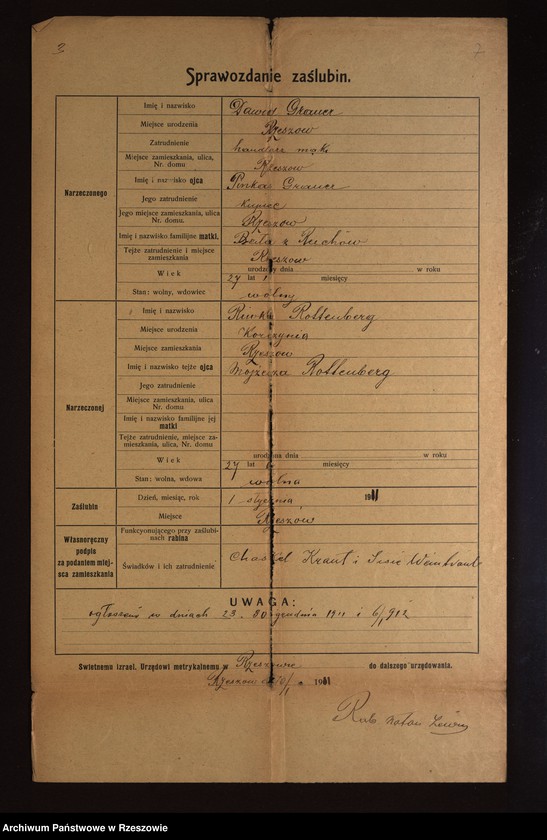 Sprawozdanie zaślubin.
Narzeczonego
Imię i nazwisko Dawid Graner
Miejsce urodzenia Rzeszów
Zatrudnienie handlarz mąki
Miejsce zamieszkania, ulica, Nr. domu Rzeszów
Imię i nazwisko ojca Pinkas Graner
Jego zatrudnienie kupiec
Jego miejsce zamieszkania, ulica Nr. domu. Rzeszów
Imię i nazwisko familijne matki. Beila z Ruchów
Tejże zatrudnienie i miejsce zamieszkania Rzeszów
Wiek urodzony dnia w roku
27 lat miesięcy
Stan: wolny, wdowiec wolny
Narzeczonej
Imię i nazwisko Riwka Rottenberg
Miejsce urodzenia Korczynia
Miejsce zamieszkania Rzeszów
Imię i nazwisko tejże ojca Mojżesza Rottenberg
Jego zatrudnienie
Miejsce zamieszkania, ulica Nr. domu
Imię i nazwisko familijne jej matki
Tejże zatrudnienie, miejsce zamieszkania, ulica, Nr. domu
Wiek urodzona dnia w roku
27 lat miesięcy
Stan: wolna, wdowa wolna
Zaślubin
Dzień, miesiąc, rok 1 stycznia 1911
Miejsce Rzeszów
Własnoręczny podpis za podaniem miejsca zamieszkania
Funkcyonującego przy zaślubinach rabina
Świadków i ich zatrudnienie Chaskel Kraut i
UWAGA:
ogłoszono w dniach 23. 30 grudnia 1911 i 6/1 912
Świetnemu izrael. Urzędowi metrykalnemu w Rzeszowie do dalszego urzędowania.
Rzeszów 1911
Rab. Natan
Archiwum Państwowe w Rzeszowie